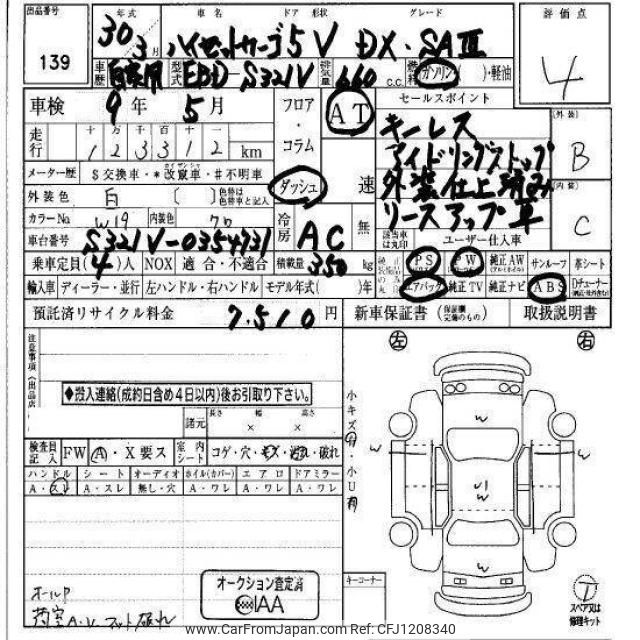 出品番号 年式 車名 ドア 形状 グレード 評価点
139 30 3月 ハイゼットカーゴ 5V DX・SAⅢ 4
車歴 自家用 型式 EBD S321V 排気量 660 c.c. 燃料 ガソリン( )・軽油
車検 9年 5月 フロア・コラム AT セールスポイント
キーレス
走行 十 万 千 百 十 一
123312 km
アイドリングストップ 外装 B
メーター歴 $交換車・*改竄車・#不明車 ダッシュ 速 外装仕上済み
外装色 白 〔 〕 色替は色替車と記入 リースアップ車 内装 C
カラーNo. W19 内装色 冷房 AC 無 該当車は丸印 ユーザー仕入車
車台番号 S321V-0354731
乗車定員(4)人 NOX 適合・不適合 積載量 350 kg PS PW 純正AW サンルーフ 革シート
輸入車 ディーラー・並行 左ハンドル・右ハンドル モデル年式( )年 エアバック 純正TV 純正ナビ ABS Dチューナー
預託済リサイクル料金 7,510 円 新車保証書 (保証欄完備のもの) 取扱説明書
左 右
注意事項(出品店)
◆搬入連絡(成約日含め4日以内)後お引取り下さい。
諸元 長さ 幅 高さ
× ×
小キズ
小U有
W W W U1 W W
検査員記入 FW A・X要ス 室内シート コゲ・穴・キズ・汚れ・破れ
ハンドル シート オーディオ ホイル(カバー) エアロ ドアミラー
A・スレ A・スレ 無し・穴 A・ワレ A・ワレ A・ワレ
オールP
荷室A・V マット破れ
オークション査定済
IAA
キーコーナー
T
スペア又は修理キット
www.CarFromJapan.com Ref:CFJ1208340